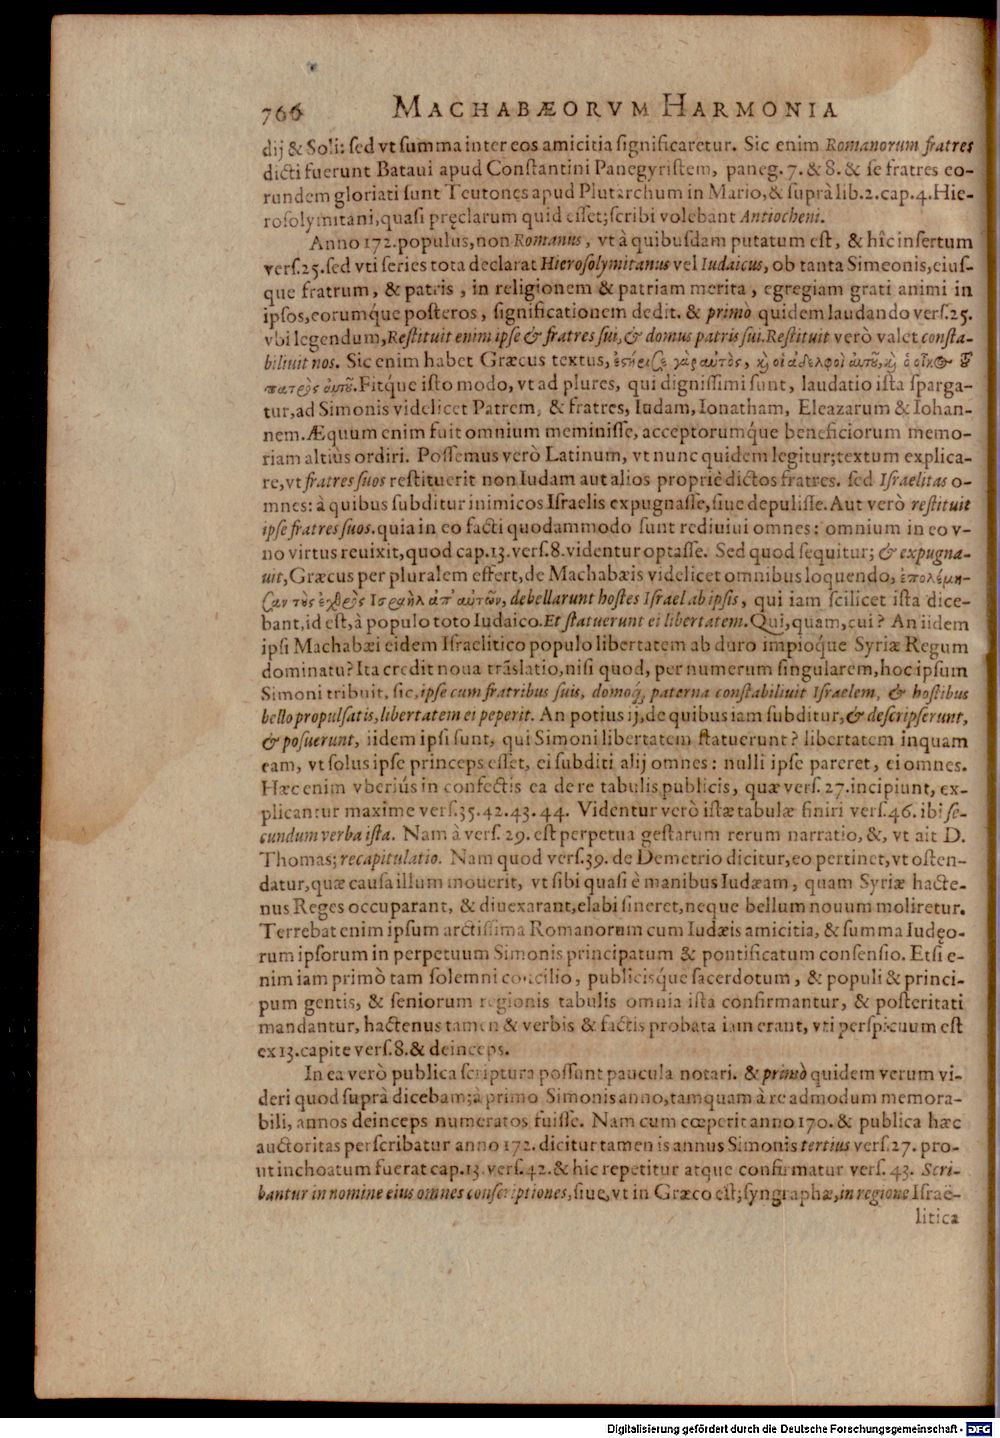 766 MACHABÆORVM HARMONIA
dij & Soli: sed vt summa inter eos amicitia significaretur. Sic enim Romanorum fratres
dicti fuerunt Bataui apud Constantini Panegyristem, paneg. 7. & 8. & se fratres eo-
rundem gloriati sunt Teutones apud Plutarchum in Mario, & suprà lib. 2. cap. 4. Hie-
rosolymitani, quasi pręclarum quid esset; scribi volebant Antiocheni.
Anno 172. populus, non Romanus, vt à quibusdam putatum est, & hîc insertum
vers. 25. sed vti series tota declarat Hierosolymitanus vel Iudaicus, ob tanta Simeonis, eius-
que fratrum, & patris, in religionem & patriam merita, egregiam grati animi in
ipsos, eorumq́ue posteros, significationem dedit. & primò quidem laudando vers. 25.
vbi legendum, Restituit enim ipse & fratres sui, & domus patris sui. Restituit verò valet consta-
biliuit nos. Sic enim habet Græcus textus, ἐστήριζε γὰρ αὐτὸς, καὶ οἱ ἀδελφοὶ αὐτοῦ, καὶ ὁ οἶκος τοῦ
πατρὸς αὐτοῦ. Fitq́ue isto modo, vt ad plures, qui dignissimi sunt, laudatio ista sparga-
tur, ad Simonis videlicet Patrem, & fratres, Iudam, Ionatham, Eleazarum & Iohan-
nem. Æquum enim fuit omnium meminisse, acceptorumq́ue beneficiorum memo-
riam altiùs ordiri. Possemus verò Latinum, vt nunc quidem legitur; textum explica-
re, vt fratres suos restituerit non Iudam aut alios propriè dictos fratres. sed Israelitas o-
mnes: à quibus subditur inimicos Israelis expugnasse, siue depulisse. Aut verò restituit
ipse fratres suos. quia in eo facti quodammodo sunt rediuiui omnes: omnium in eo v-
no virtus reuixit, quod cap. 13. vers. 8. videntur optasse. Sed quod sequitur; & expugna-
uit, Græcus per pluralem effert, de Machabæis videlicet omnibus loquendo, ἐπολέμη-
σαν τοὺς ἐχθροὺς Ισραὴλ ἀπ' αὐτῶν, debellarunt hostes Israel ab ipsis, qui iam scilicet ista dice-
bant, id est, à populo toto Iudaico. Et statuerunt ei libertatem. Qui, quam, cui? An iidem
ipsi Machabæi eidem Israelitico populo libertatem ab duro impioq́ue Syriæ Regum
dominatu? Ita credit noua trãslatio, nisi quod, per numerum singularem, hoc ipsum
Simoni tribuit, sic, ipse cum fratribus suis, domoq́; paterna constabiliuit Israelem, & hostibus
bello propulsatis, libertatem ei peperit. An potius ij, de quibus iam subditur, & descripserunt,
& posuerunt, iidem ipsi sunt, qui Simoni libertatem statuerunt? libertatem inquam
eam, vt solus ipse princeps esset, ei subditi alij omnes: nulli ipse pareret, ei omnes.
Hæc enim vberiùs in confectis ea de re tabulis publicis, quæ vers. 27. incipiunt, ex-
plicantur maxime vers. 35. 42. 43. 44. Videntur verò istæ tabulæ finiri vers. 46. ibi se-
cundum verba ista. Nam à vers. 29. est perpetua gestarum rerum narratio, &, vt ait D.
Thomas; recapitulatio. Nam quod vers. 39. de Demetrio dicitur, eo pertinet, vt osten-
datur, quæ causa illum mouerit, vt sibi quasi è manibus Iudæam, quam Syriæ hacte-
nus Reges occuparant, & diuexarant, elabi sineret, neque bellum nouum moliretur.
Terrebat enim ipsum arctissima Romanorum cum Iudæis amicitia, & summa Iudęo-
rum ipsorum in perpetuum Simonis principatum & pontificatum consensio. Etsi e-
nim iam primò tam solemni concilio, publicisq́ue sacerdotum, & populi & princi-
pum gentis, & seniorum regionis tabulis omnia ista confirmantur, & posteritati
mandantur, hactenus tamen & verbis & factis probata iam erant, vti perspicuum est
ex 13. capite vers. 8. & deinceps.
In ea verò publica scriptura possunt paucula notari. & primò quidem verum vi-
deri quod suprà dicebam; à primo Simonis anno, tamquam à re admodum memora-
bili, annos deinceps numeratos fuisse. Nam cum cœperit anno 170. & publica hæc
auctoritas perscribatur anno 172. dicitur tamen is annus Simonis tertius vers. 27. pro-
ut inchoatum fuerat cap. 13. vers. 42. & hic repetitur atque confirmatur vers. 43. Scri-
bantur in nomine eius omnes conscriptiones, siue, vt in Græco est; syngraphæ, in regione Israë-
litica
Digitalisierung gefördert durch die Deutsche Forschungsgemeinschaft - DFG